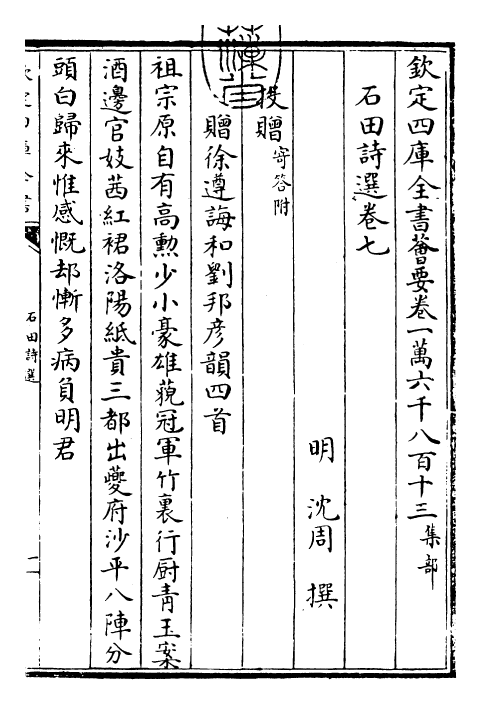 欽定四庫全書薈要卷一萬六千八百十三集部
石田詩選卷七
明 沈周 撰
投贈寄答附
贈徐遵誨和劉邦彦韻四首
祖宗原自有高勲少小豪雄藐冠軍竹裏行厨青玉案
酒邊官妓茜紅裙洛陽紙貴三都出夔府沙平八陣分
頭白歸來惟感慨却慚多病負明君
石田詩選
一